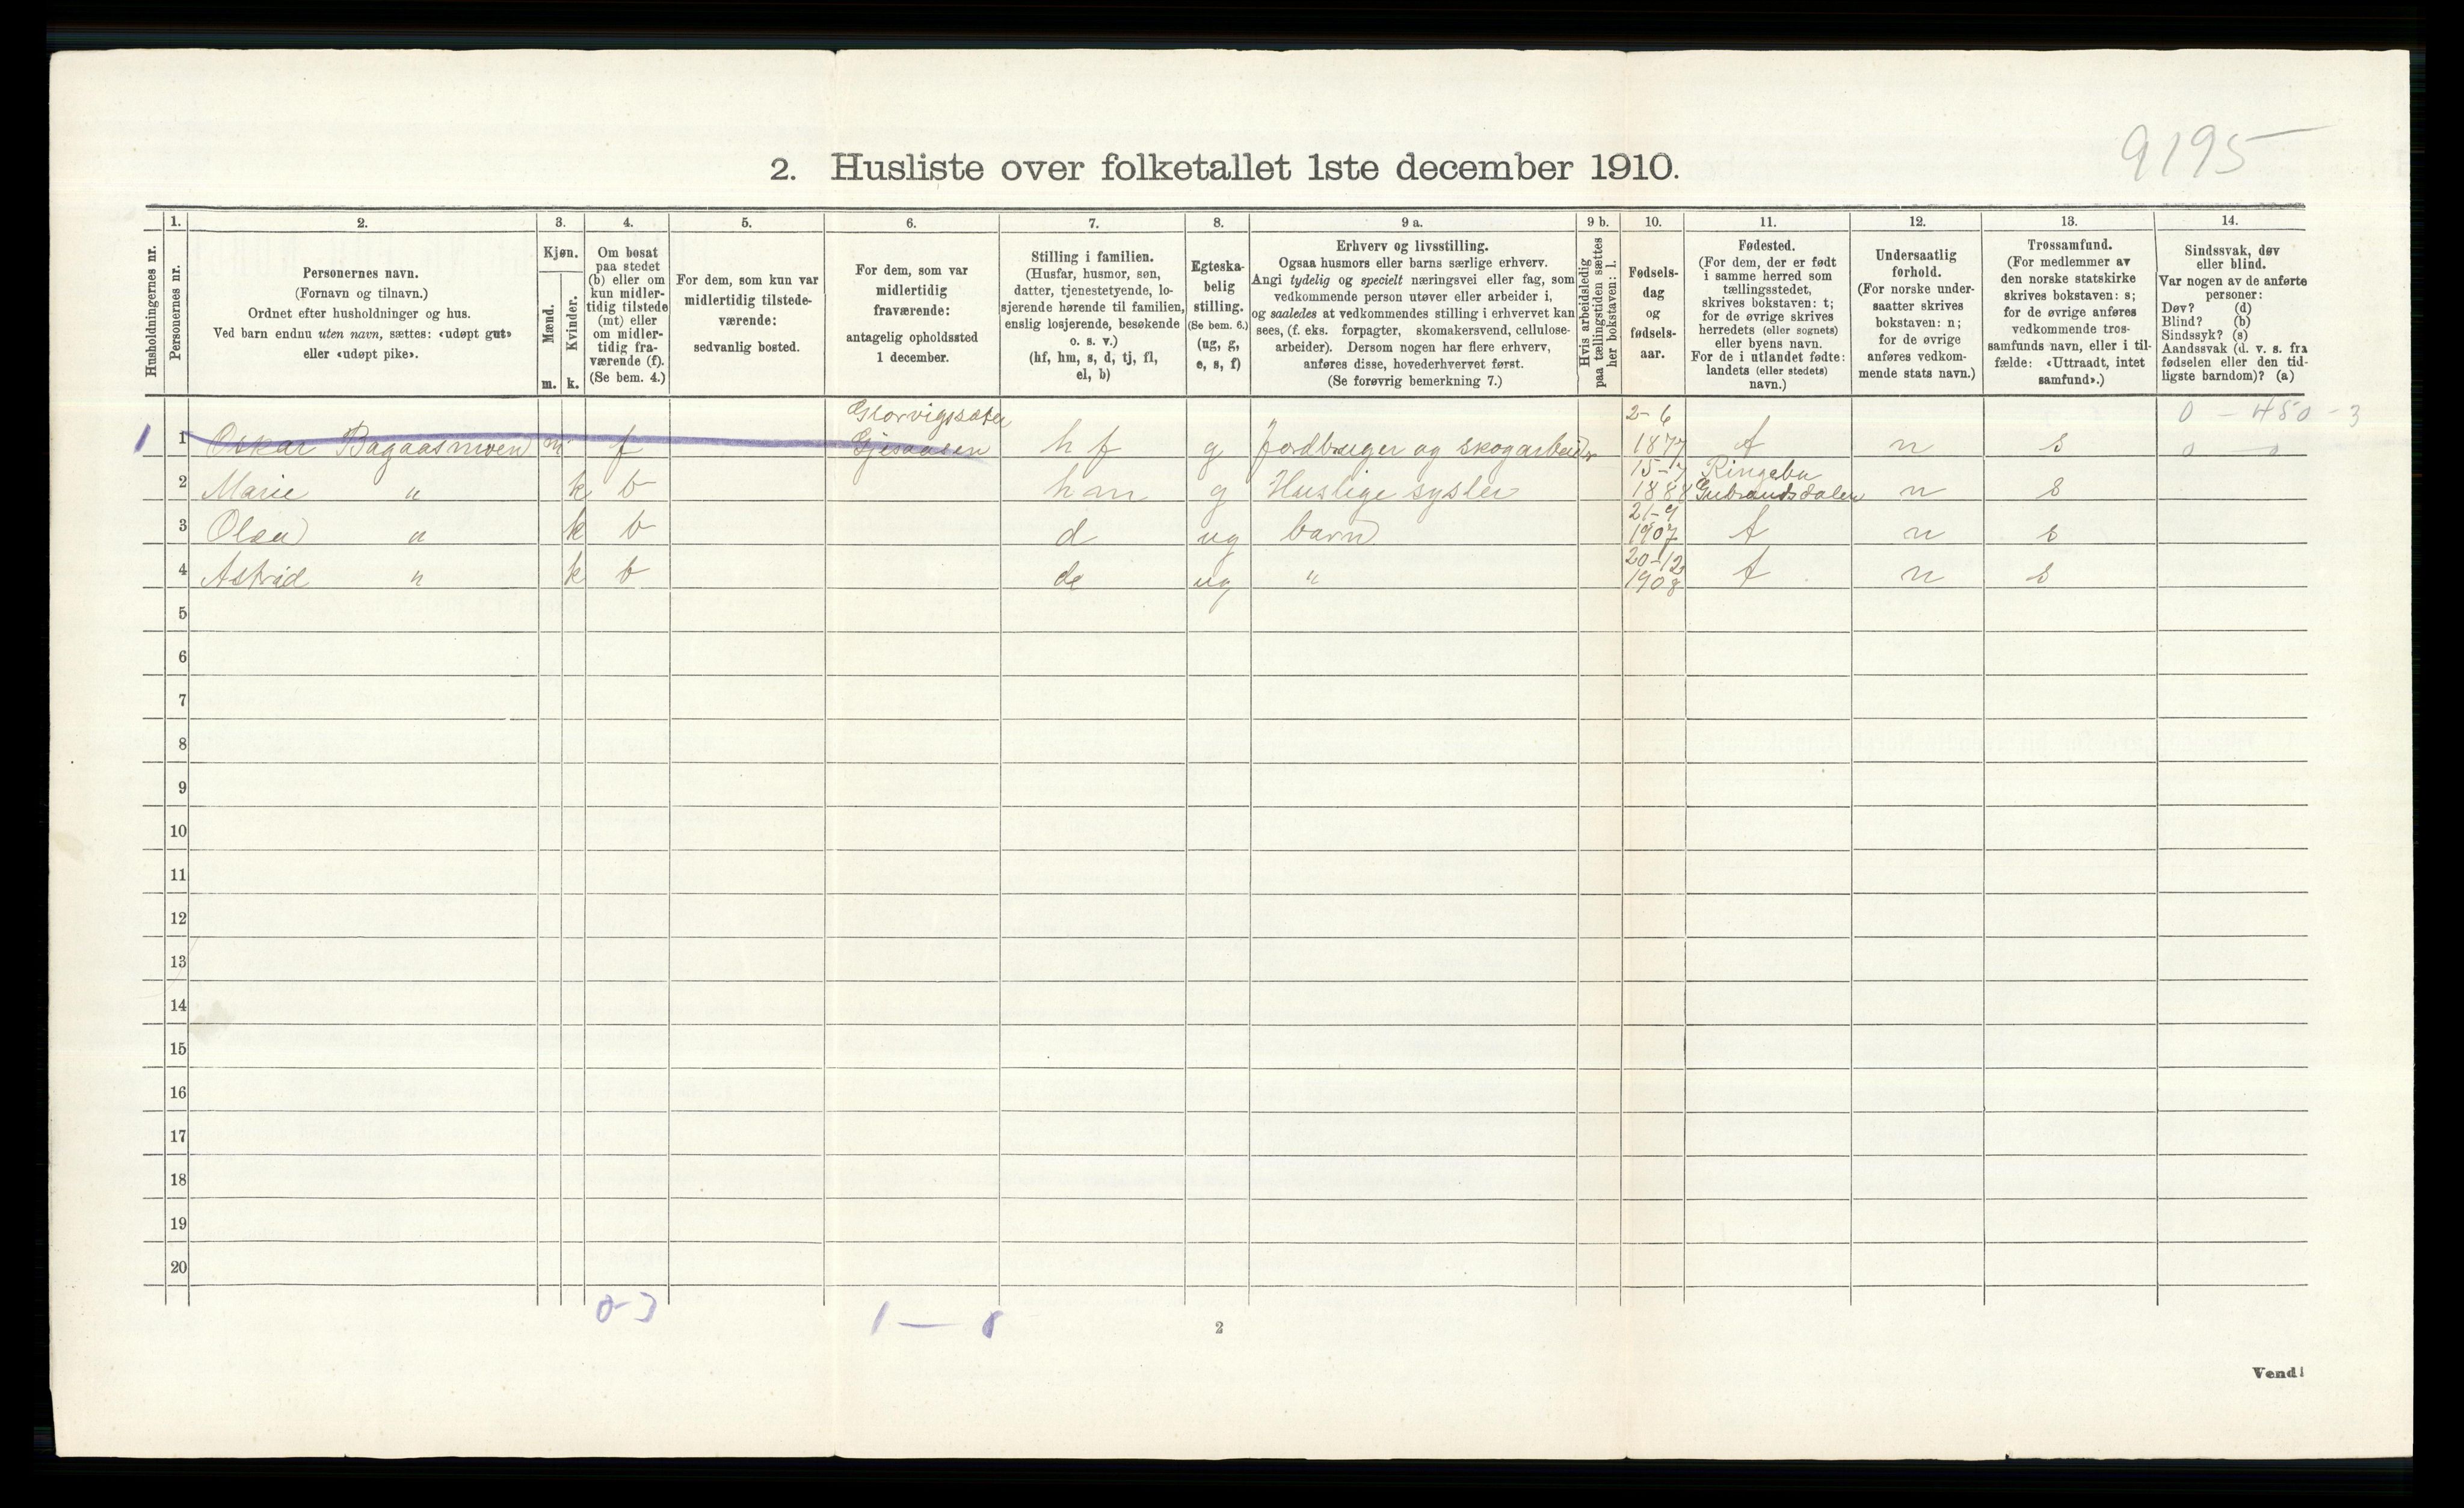 9195
2. Husliste over folketallet 1ste december 1910.
Husholdningernes nr.
1.
Personernes nr.
2.
Personernes navn.
(Fornavn og tilnavn.)
Ordnet efter husholdninger og hus.
Ved barn endnu uten navn, sættes: «udøpt gut»
eller «udøpt pike».
3.
Kjøn.
Mænd.
Kvinder.
m. k.
4.
Om bosat
paa stedet
(b) eller om
kun midler-
tidig tilstede
(mt) eller
om midler-
tidig fra-
værende (f).
(Se bem. 4.)
5.
For dem, som kun var
midlertidig tilstede-
værende:
sedvanlig bosted.
6.
For dem, som var
midlertidig
fraværende:
antagelig opholdssted
1 december.
7.
Stilling i familien.
(Husfar, husmor, søn,
datter, tjenestetyende, lo-
sjerende hørende til familien,
enslig losjerende, besøkende
o. s. v.)
(hf, hm, s, d, tj, fl,
el, b)
8.
Egteska-
belig
stilling.
(Se bem. 6.)
(ug, g,
e, s, f)
9 a.
Erhverv og livsstilling.
Ogsaa husmors eller barns særlige erhverv.
Angi tydelig og specielt næringsvei eller fag, som
vedkommende person utøver eller arbeider i,
og saaledes at vedkommendes stilling i erhvervet kan
sees, (f. eks. forpagter, skomakersvend, cellulose-
arbeider). Dersom nogen har flere erhverv,
anføres disse, hovederhvervet først.
(Se forøvrig bemerkning 7.)
9 b.
Hvis arbeidsledig
paa tællingstiden sættes
her bokstaven: l.
10.
Fødsels-
dag
og
fødsels-
aar.
11.
Fødested.
(For dem, der er født
i samme herred som
tællingsstedet,
skrives bokstaven: t;
for de øvrige skrives
herredets (eller sognets)
eller byens navn.
For de i utlandet fødte:
landets (eller stedets)
navn.)
12.
Undersaatlig
forhold.
(For norske under-
saatter skrives
bokstaven: n;
for de øvrige
anføres vedkom-
mende stats navn.)
13.
Trossamfund.
(For medlemmer av
den norske statskirke
skrives bokstaven: s;
for de øvrige anføres
vedkommende tros-
samfunds navn, eller i til-
fælde: «Uttraadt, intet
samfund».)
14.
Sindssvak, døv
eller blind.
Var nogen av de anførte
personer:
Døv? (d)
Blind? (b)
Sindssyk? (s)
Aandssvak (d. v. s. fra
fødselen eller den tid-
ligste barndom)? (a)
Glorvigsæter 2-6 0 - 450 - 3
1 1 Oskar Bagaasmoen m f Gjesaasen hf g Jordbruger og skogarbeider 1877 t n s 0 0
15-7 Ringebu
2 Marie " k b hm g Huslige sysler 1888 Gubrandsdalen n s
21-9
3 Olea " k b d ug barn 1907 t n s
20-12
4 Astrid " k b d ug " 1908 t n s
5
6
7
8
9
10
11
12
13
14
15
16
17
18
19
20
0-3
1 —
2
Vend!